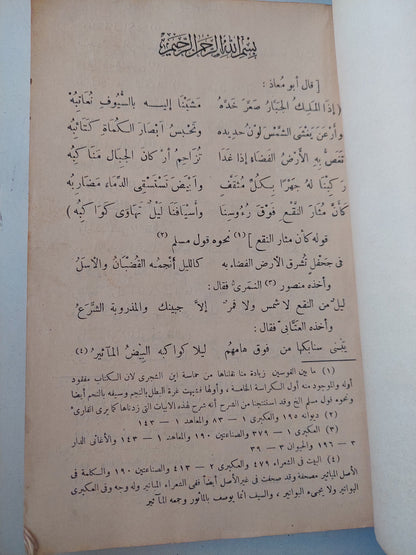 بسم الله الرحمن الرحيم
[ قال أبو معاذ :
( إذَا المَلِكُ الجَبَّارُ صَعَّرَ خَدَّهُ مَشَيْنَا إليه بالسُّيُوفِ نُعَاتِبُهْ
وأرْعَنَ يَغْشَى الشَّمْسَ لَوْنُ حديده وَتَحْبِسُ أبْصَارَ الكُمَاةِ كَتَائِبُهْ
تَغَصُّ بِهِ الأرْضُ الفَضَاءُ إذا غَدَا تُزَاحِمُ أرْكَانَ الجِبَالِ مَنَاكِبُهْ
رَكِبْنَا لَهُ جَهْرًا بِكُلِّ مُثَقَّفٍ وَأبْيَضَ تَسْتَسْقِي الدِّمَاءَ مَضَارِبُهْ
كأنَّ مُثَارَ النَّقْعِ فَوْقَ رُءُوسِنَا وأسيافَنَا لَيْلٌ تَهَاوَى كَوَاكِبُهْ )
قوله كأن مثار النقع ] (١) نحوه قول مسلم (٢)
فى جَحْفَلٍ تُشرق الأرض الفضاء به كالليل أنجمه القُضْبَانُ والأسَلُ
وأخذه منصور (٣) النمرىّ فقال :
ليلٌ من النقع لا شمس ولا قمرٌ إلاَّ جبينك والمذروبة الشُّرَّعُ
وأخذه العتَّابى فقال :
يَبْنى سنابكها من فوق هامهم ليلا كواكبه البِيضُ المآثيرُ (٤)
(١) ما بين القوسين زيادة منا نقلناها من حماسة ابن الشجرى لان الكتاب مفقود
أوله والموجود منه أول الكراسة الخامسة ، وأولها فشبهت غرة البطل بالنجم وسيفه بالنجم أيضا
ونحوه قول مسلم الخ وقد استنتجنا من الشرح أنه شرح لهذه الابيات التى زدناها كما يرى القارئ
(٢) ديوانه ١٩٥ والعكبرى ١ — ٨٣ والمعاهد ١ — ١٤٣
(٣) العكبرى ١ — ٣٧٩ والصناعتين ١٩٠ والمعاهد ١ — ١٤٣ والأغانى الدار
٣ — ١٩٦ والحيوان ٣ — ٣٩
(٤) البيت فى الشعراء ٤٧٩ والعكبرى ٢ — ٤١٣ والصناعتين ١٩٠ والكلمة فى
الأصل المباثير مصحفة وقد صحفت فى غير الأصل أيضاً ففى الشعراء المباتير وله وجه وفى العكبرى
البواتير ولا يجىء البواتير ، والسيف انما يوصف بالمأثور وجمعه المآثير